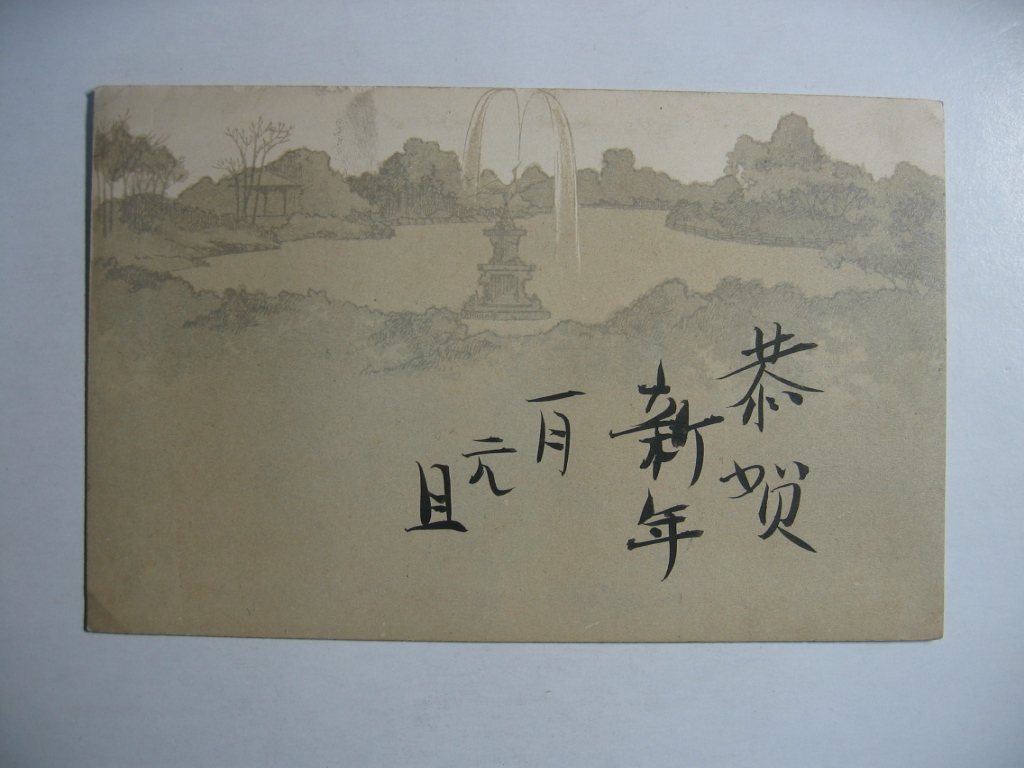 恭贺
新年
一月
元
旦